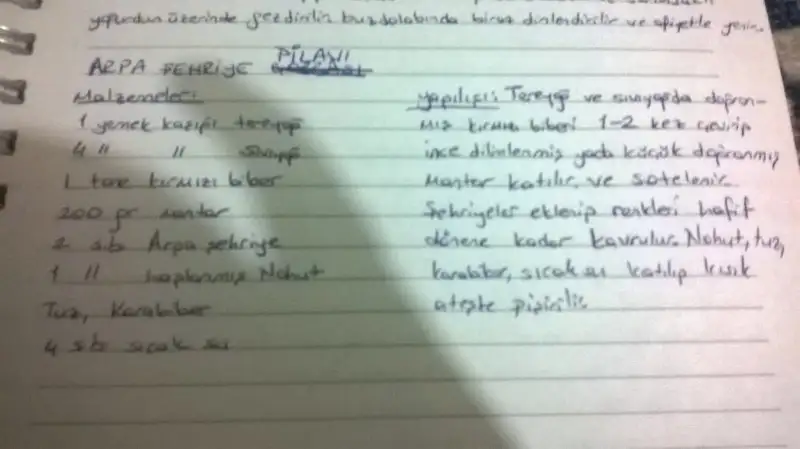 yoğurdun üzerinde gezdirilir buzdolabında biraz dinlendirilir ve afiyetle yenir.
ARPA ŞEHRİYE PİLAVI
Malzemeleri
1 yemek kaşığı tereyağ
4 " " Sıvıyağ
1 tane kırmızı biber
200 gr mantar
2 s.b Arpa şehriye
1 " haşlanmış Nohut
Tuz, Karabiber
4 sb sıcak su
yapılışı: Tereyağ ve sıvıyağda doğran-
mış kırmızı biberi 1-2 kez çevirip
ince dilimlenmiş yada küçük doğranmış
Mantar katılır ve sotelenir.
Şehriyeler eklenip renkleri hafif
dönene kadar kavrulur. Nohut, tuz,
karabiber, sıcak su katılıp kısık
ateşte pişirilir